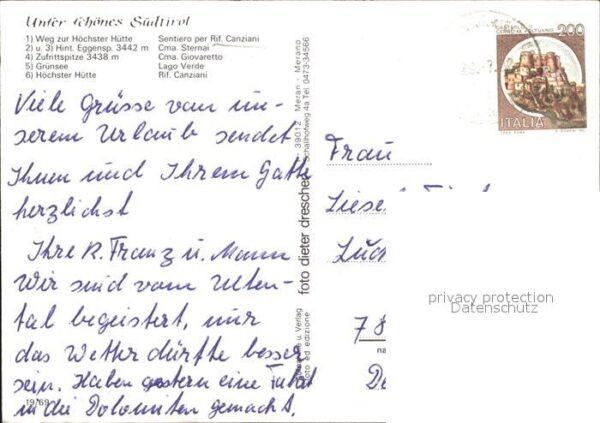 Unser schönes Südtirol
1) Weg zur Höchster Hütte Sentiero per Rif. Canziani
2) u. 3) Hint. Eggensp. 3442 m Cma. Sternai
4) Zufrittspitze 3438 m Cma. Giovaretto
5) Grünsee Lago Verde
6) Höchster Hütte Rif. Canziani
Viele Grüsse von un-
serem Urlaub sendet
Ihnen und Ihrem Gatte
herzlichst
Ihre R. Franz u. Mann
Wir sind vom Ulten-
tal begeistert, nur
das Wetter dürfte besser
sein. Haben gestern eine Fahrt
in die Dolomiten gemacht.
19/69
foto dieter drescher
39012 Meran - Merano
Schallhofweg 4a Tel. 0473-34566
u. Verlag
foto ed edizione
200
ITALIA
Frau
Liese
78
privacy protection
Datenschutz